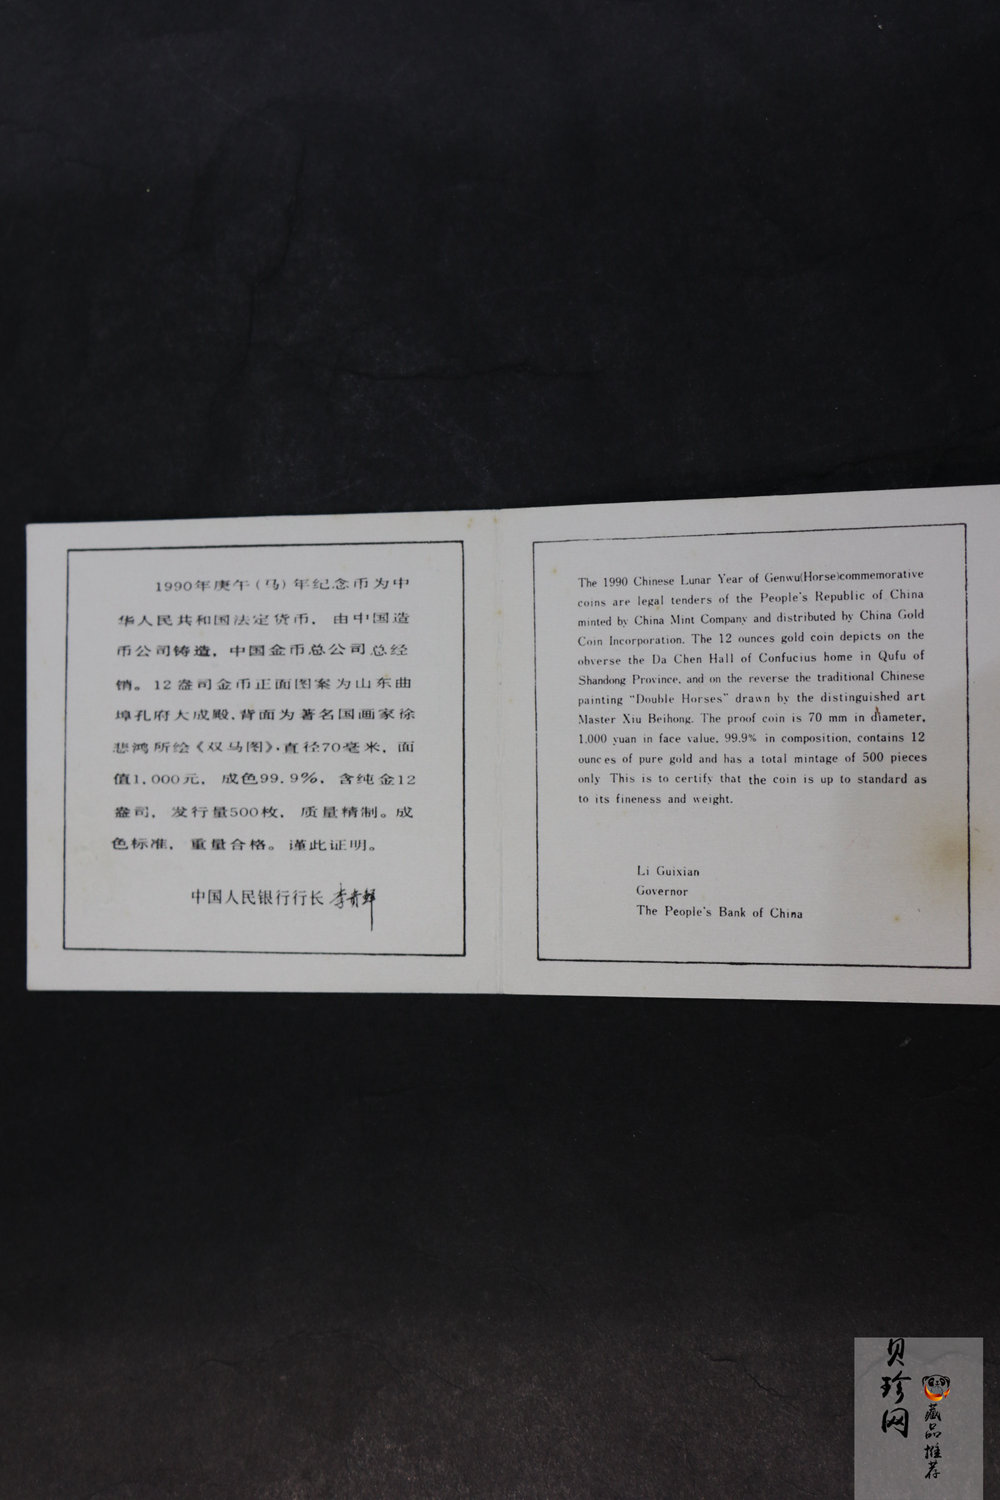 1990年庚午(马)年纪念币为中
华人民共和国法定货币，由中国造
币公司铸造，中国金币总公司总经
销。12盎司金币正面图案为山东曲
埠孔府大成殿，背面为著名国画家徐
悲鸿所绘《双马图》，直径70毫米，面
值1,000元，成色99.9%，含纯金12
盎司，发行量500枚，质量精制。成
色标准，重量合格。谨此证明。
中国人民银行行长 李贵鲜
The 1990 Chinese Lunar Year of Genwu(Horse)commemorative
coins are legal tenders of the People's Republic of China
minted by China Mint Company and distributed by China Gold
Coin Incorporation. The 12 ounces gold coin depicts on the
obverse the Da Chen Hall of Confucius home in Qufu of
Shandong Province, and on the reverse the traditional Chinese
painting "Double Horses" drawn by the distinguished art
Master Xiu Beihong. The proof coin is 70 mm in diameter,
1,000 yuan in face value, 99.9% in composition, contains 12
ounces of pure gold and has a total mintage of 500 pieces
only This is to certify that the coin is up to standard as
to its fineness and weight.
Li Guixian
Governor
The People's Bank of China
贝珍网
藏品推荐